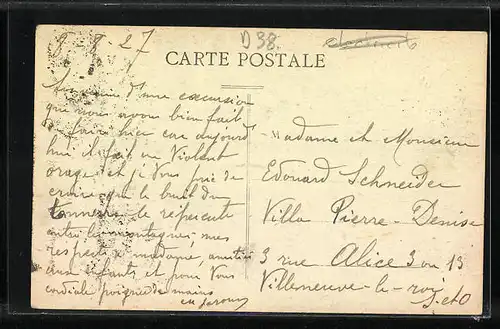 8-8-27
D38.
CARTE POSTALE
d'une excursion
que nous avons bien fait
de faire hier car aujourd'
hui il fait un Violent
orage et je vous prie de
croire que le bruit du
tonnerre se répercute
entre les montagnes, mes
respects à madame, amitiés
aux enfants et pour Vous
cordiale poignée de mains
Madame et Monsieur
Edouard Schneider
Villa Pierre-Denise
3 rue Alice 3 ou 13
Villeneuve-le-roi
S.etO